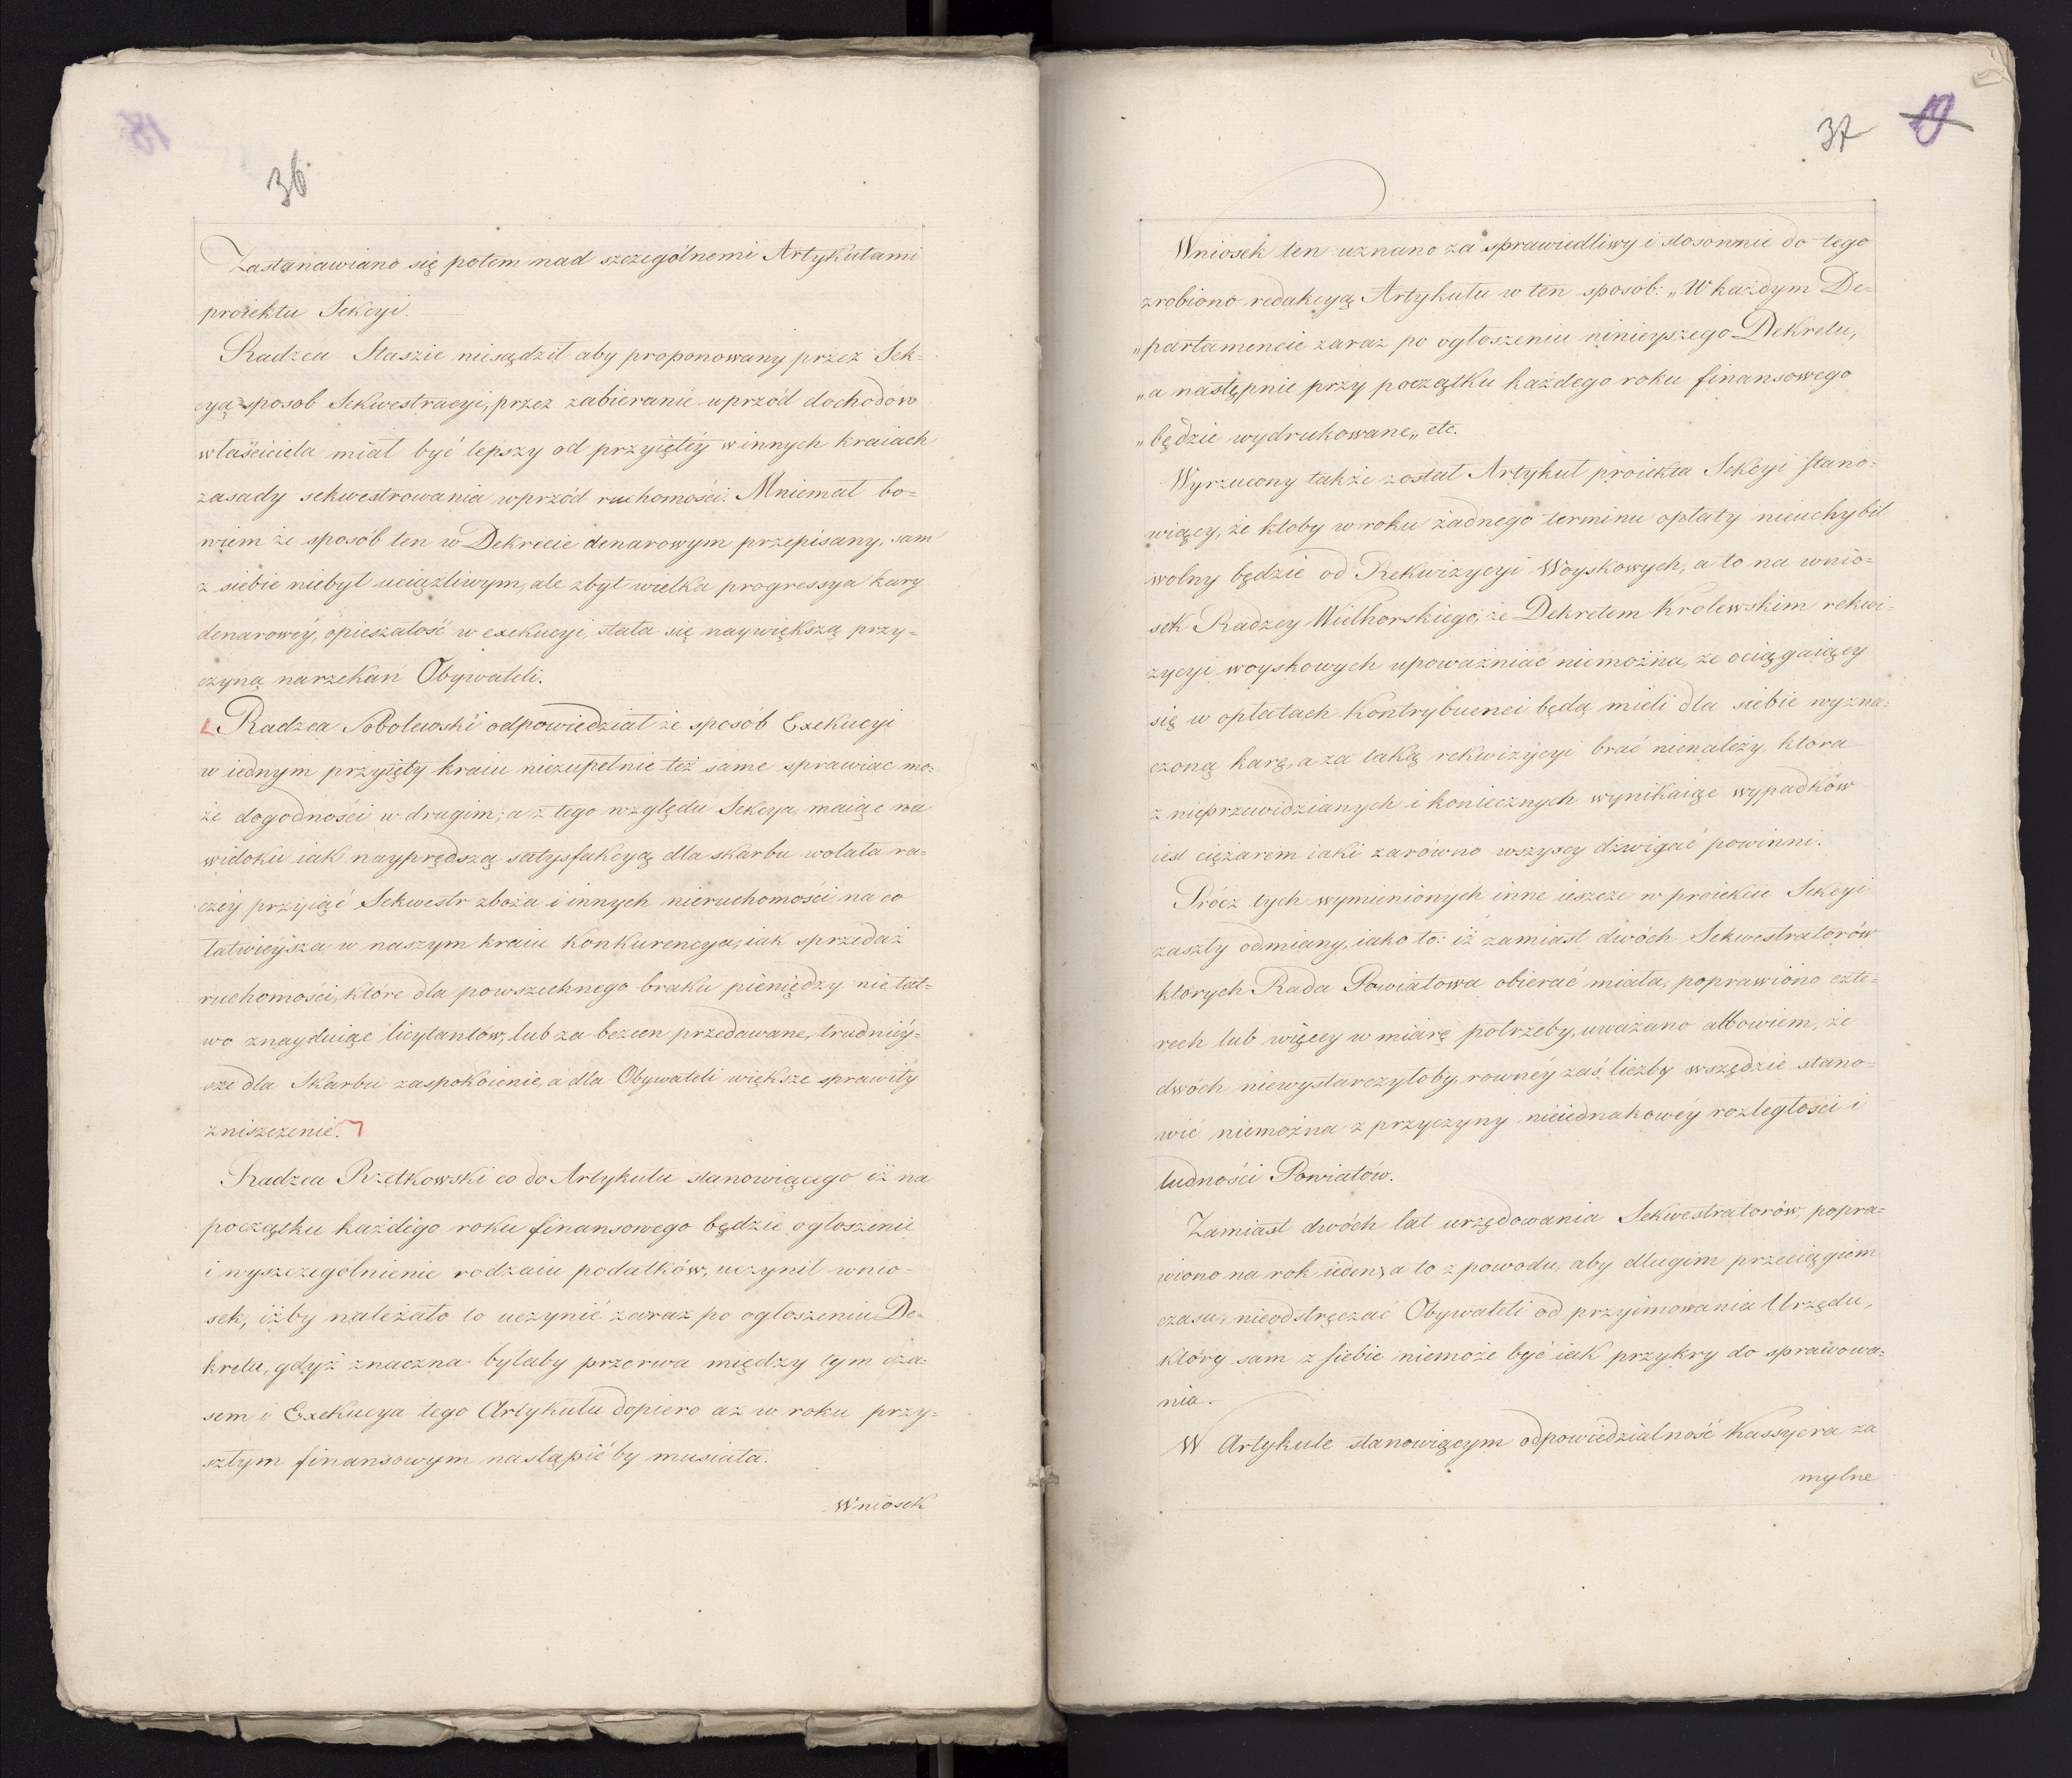 36
Zastanawiano się potem nad szczególnemi Artykułami
proiektu Sekcyi.
Radzca Staszic niesądził aby proponowany przez Sek-
cyą sposob Sekwestracyi, przez zabieranie uprzód dochodów
właściciela miał być lepszy od przyiętéy w innych kraiach
zasady sekwestrowania wprzód ruchomości. Mniemał bo-
wiem że sposób ten w Dekrecie denarowym przepisany, sam
z siebie niebył uciążliwym, ale zbyt wielka progressya kary
denarowéy, opieszałość w exekucyi, stała się naywiększą przy-
czyną narzekań Obywateli.
Radzca Sobolewski odpowiedział że sposób Exekucyi
w iednym przyięty kraiu niezupełnie też same sprawiac mo-
że dogodności w drugim; a z tego względu Sekcya maiąc na
widoku iak nayprędszą satysfakcyą dla skarbu wolała ra-
czéy przyiąć Sekwestr zboża i innych nieruchomości, na co
łatwieysza w naszym kraiu Konkurencya, iak sprzedaż
ruchomości, które dla powszechnego braku pieniędzy nie łat-
wo znayduiąc licytantów, lub za bezcen przedawane, trudniéy-
sze dla Skarbu zaspokoienie, a dla Obywateli większe sprawiły
zniszczenie.
Radzca Rzetkowski co do Artykułu stanowiącego iż na
początku każdego roku finansowego będzie ogłoszenie
i wyszczególnienie rodzaiu podatków, uczynił wnio-
sek, iżby należało to uczynić zaraz po ogłoszeniu De-
kretu, gdyż znaczna byłaby przerwa między tym cza-
sem i Exekucya tego Artykułu dopiero aż w roku przy-
szłym finansowym nastąpić by musiała.
Wniosek
37 19
Wniosek ten uznano za sprawiedliwy i stosownie do tego
zrobiono redakcyą Artykułu w ten sposób: „W każdym De-
„partamencie zaraz po ogłoszeniu ninieyszego Dekretu,
„a następnie przy początku każdego roku finansowego
„będzie wydrukowane„ etc.
Wyrzucony także został Artykuł proiektu Sekcyi stano-
wiący, że ktoby w roku żadnego terminu opłaty nieuchybił
wolny będzie od Rekwizycyi Woyskowych, a to na wnio-
sek Radzcy Wielhorskiego, że Dekretem Krolewskim rekwi-
zycyi woyskowych upoważniać niemożna, że ociągaiący
się w opłatach Kontrybuenci będą mieli dla siebie wyzna-
czoną karę, a za taką rekwizycyi brać nienależy, ktora
z nieprzewidzianych i koniecznych wynikaiąc wypadków
iest ciężarem iaki zarówno wszyscy dzwigać powinni.
Prócz tych wymienionych inne ieszcze w proiekcie Sekcyi
zaszły odmiany, iako to: iż zamiast dwóch Sekwestratorów
których Rada Powiatowa obierać miała, poprawiono czte-
rech lub więcey w miarę potrzeby, uważano albowiem, że
dwóch niewystarczyłoby, rownéy zaś liczby wszędzie stano-
wić niemożna z przyczyny nieiednakowéy rozległości i
ludności Powiatów.
Zamiast dwóch lat urzędowania Sekwestratorów, popra-
wiono na rok ieden, a to z powodu, aby długim przeciągiem
czasu, nieodstręczać Obywateli od przyimowania Urzędu,
który sam z siebie niemoże być iak przykry do sprawowa-
nia.
W Artykule stanowiącym odpowiedzialność Kassyera za
mylne